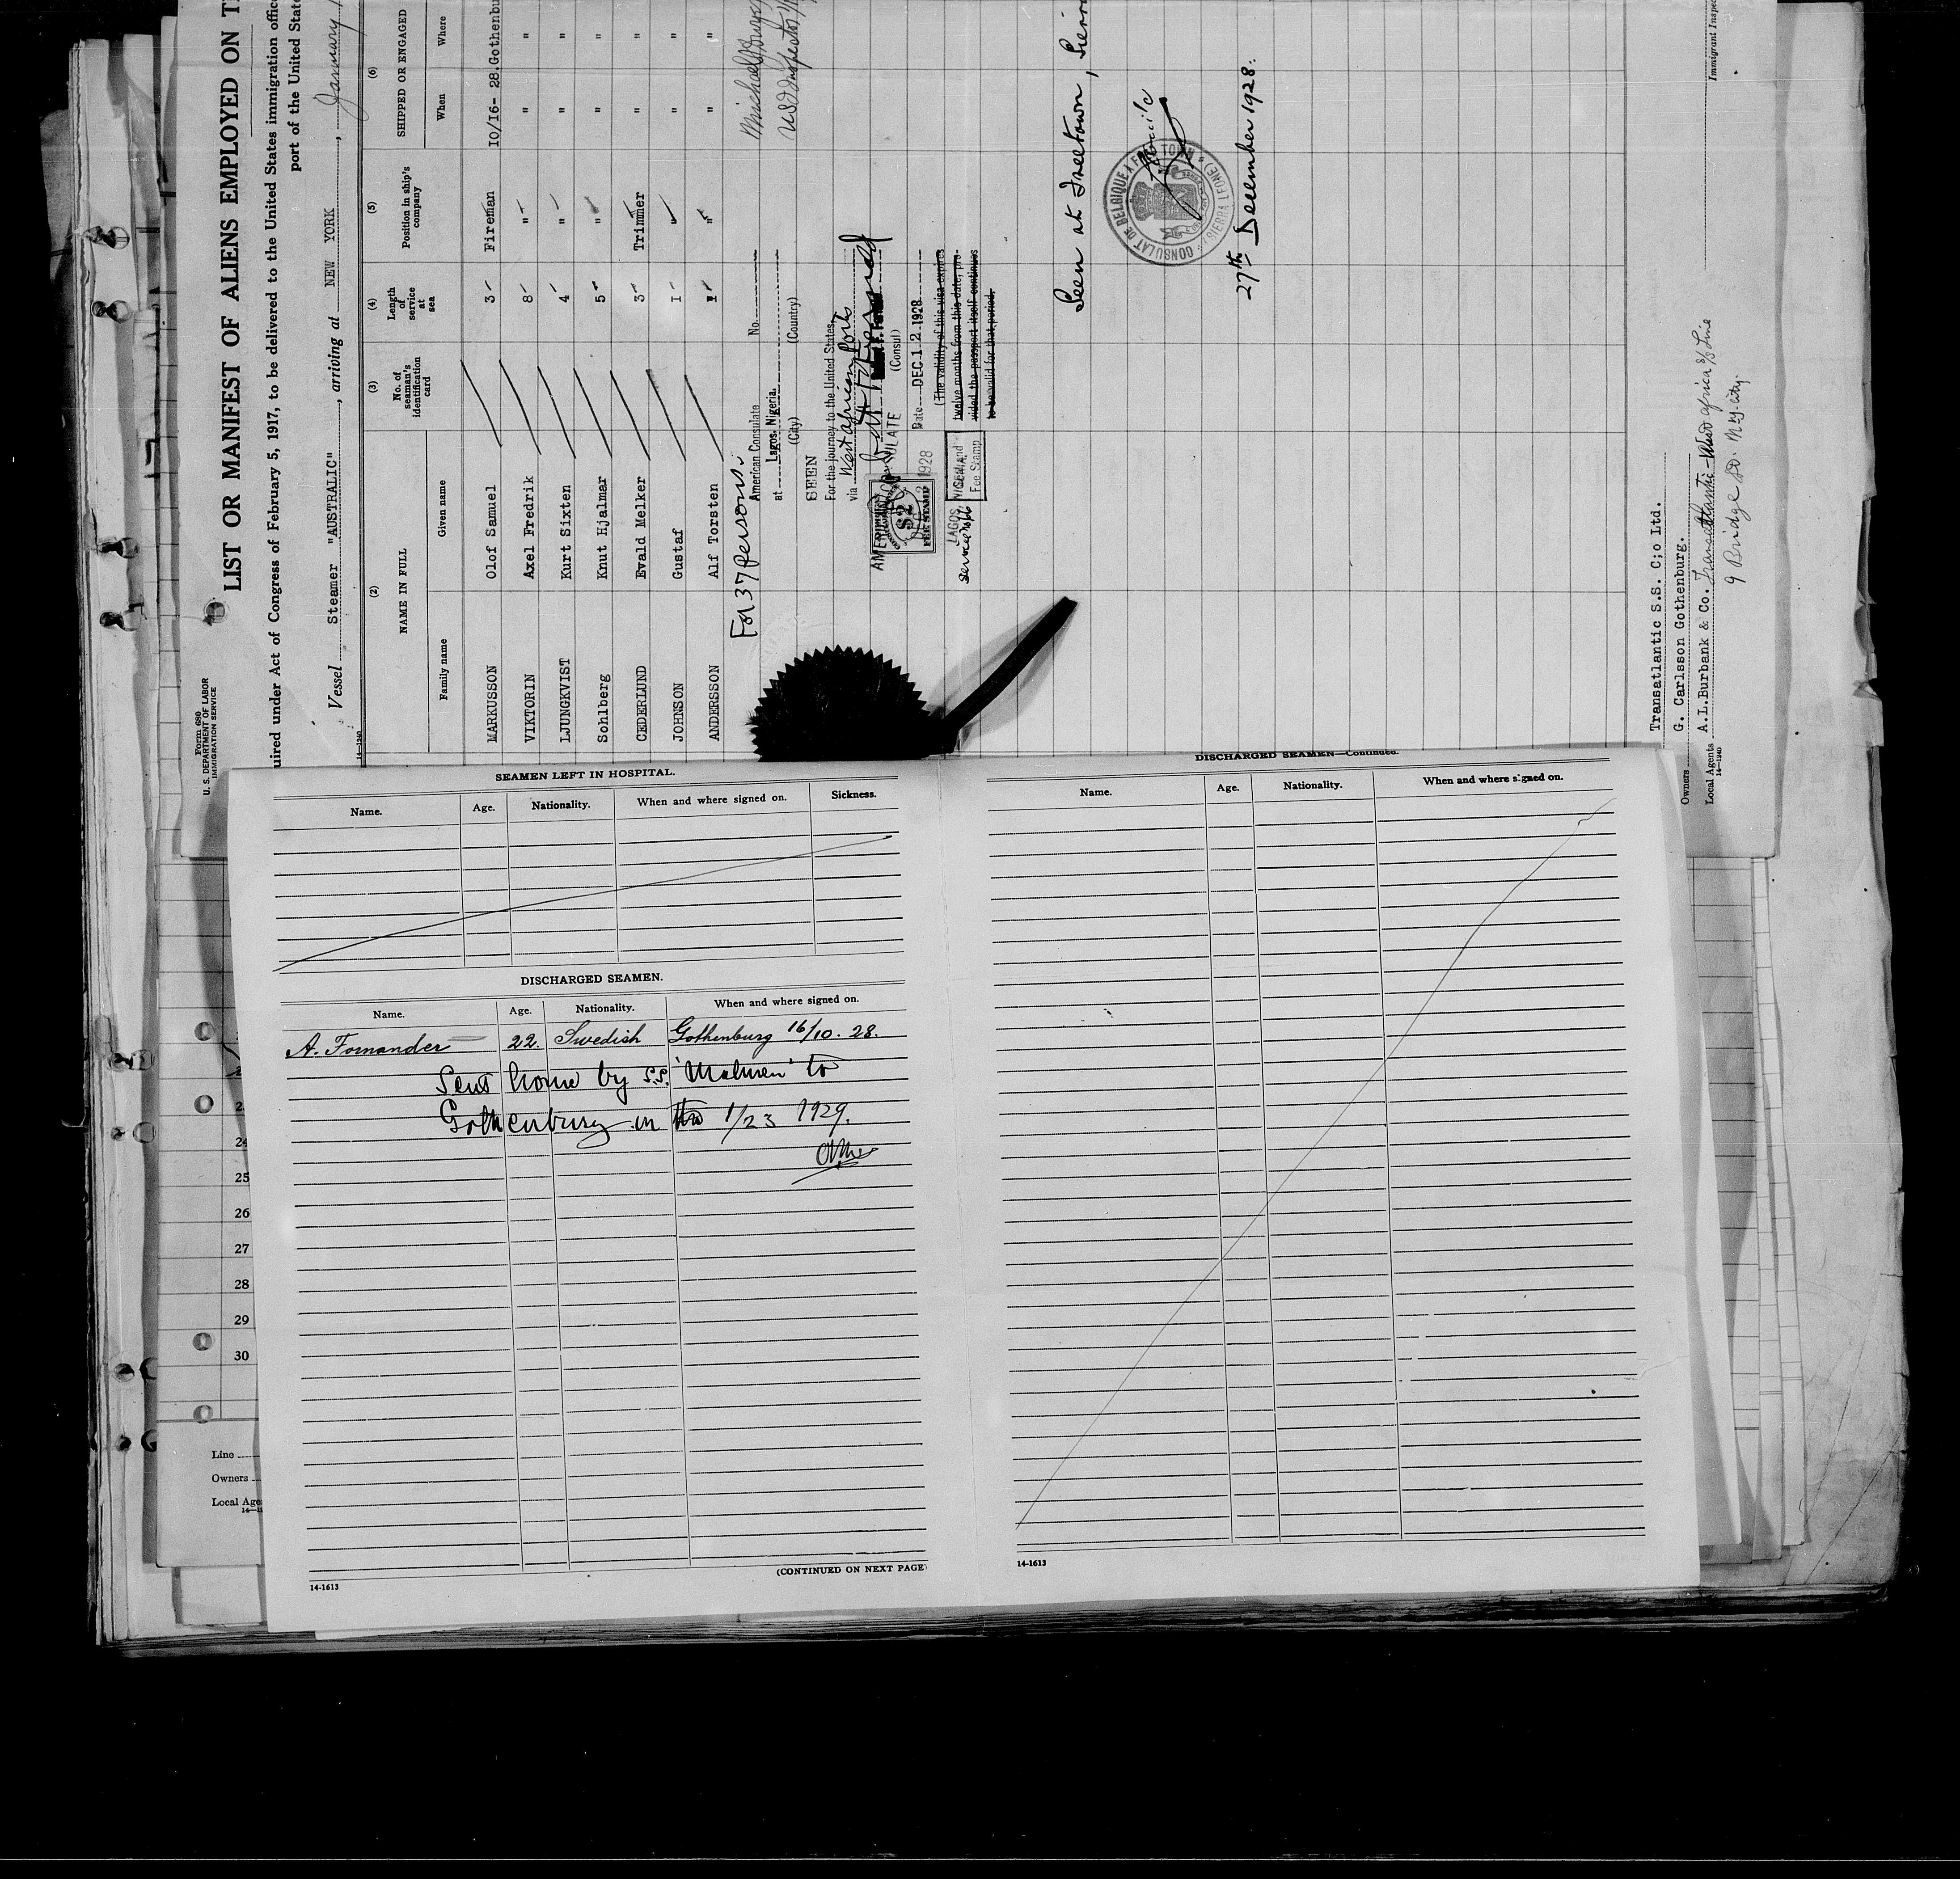 Form 680
U. S. DEPARTMENT OF LABOR
IMMIGRATION SERVICE
LIST OR MANIFEST OF ALIENS EMPLOYED ON
uired under Act of Congress of February 5, 1917, to be delivered to the United States immigration
port of the United
Vessel Steamer "AUSTRALIC", arriving at NEW YORK, January
(2) (3) (4) (5) (6)
NAME IN FULL
Family name Given name
No. of seaman's identification card
Length of service at sea
Position in ship's company
SHIPPED OR ENGAGED
When Where
MARKUSSON Olof Samuel 3 Fireman 10/16-28. Gothenbu
VIKTORIN Axel Fredrik 8 " " "
LJUNGKVIST Kurt Sixten 4 " " "
Sohlberg Knut Hjalmar 5 " " "
CEDERLUND Evald Melker 3 Trimmer " "
JOHNSON Gustaf 1 " " "
ANDERSSON Alf Torsten 1 " " "
For 37 persons.
American Consulate No.
at Lagos, Nigeria.
(City) (Country)
SEEN
For the journey to the United States,
via West african ports
(Consul)
Date DEC 12 1928
(The validity of this visa expires
twelve months from this date, pro-
vided the passport itself continues
to be valid for that period.
FEE STAMP
LAGOS, NIGERIA
Fee Stamp
Seen at Freetown,
CONSULAT DE BELGIQUE A FREETOWN (SIERRA LEONE)
27th December 1928.
Transatlantic S.S. C;o Ltd.
Owners G. Carlsson Gothenburg.
Local Agents A.L.Burbank & Co. africa S/S Line
9 Bridge St. N.Y. City.
14—1240
Immigrant
SEAMEN LEFT IN HOSPITAL.
Name. Age. Nationality. When and where signed on. Sickness.
DISCHARGED SEAMEN.
Name. Age. Nationality. When and where signed on.
A. Fornander 22. Swedish Gothenburg 16/10. 28.
Sent home by S.S. "Malmen" to
Gothenburg on the 1/23 1929.
(CONTINUED ON NEXT PAGE)
14-1613
DISCHARGED SEAMEN—Continued.
Name. Age. Nationality. When and where signed on.
14-1613
24
25
26
27
28
29
30
Line
Owners
Local